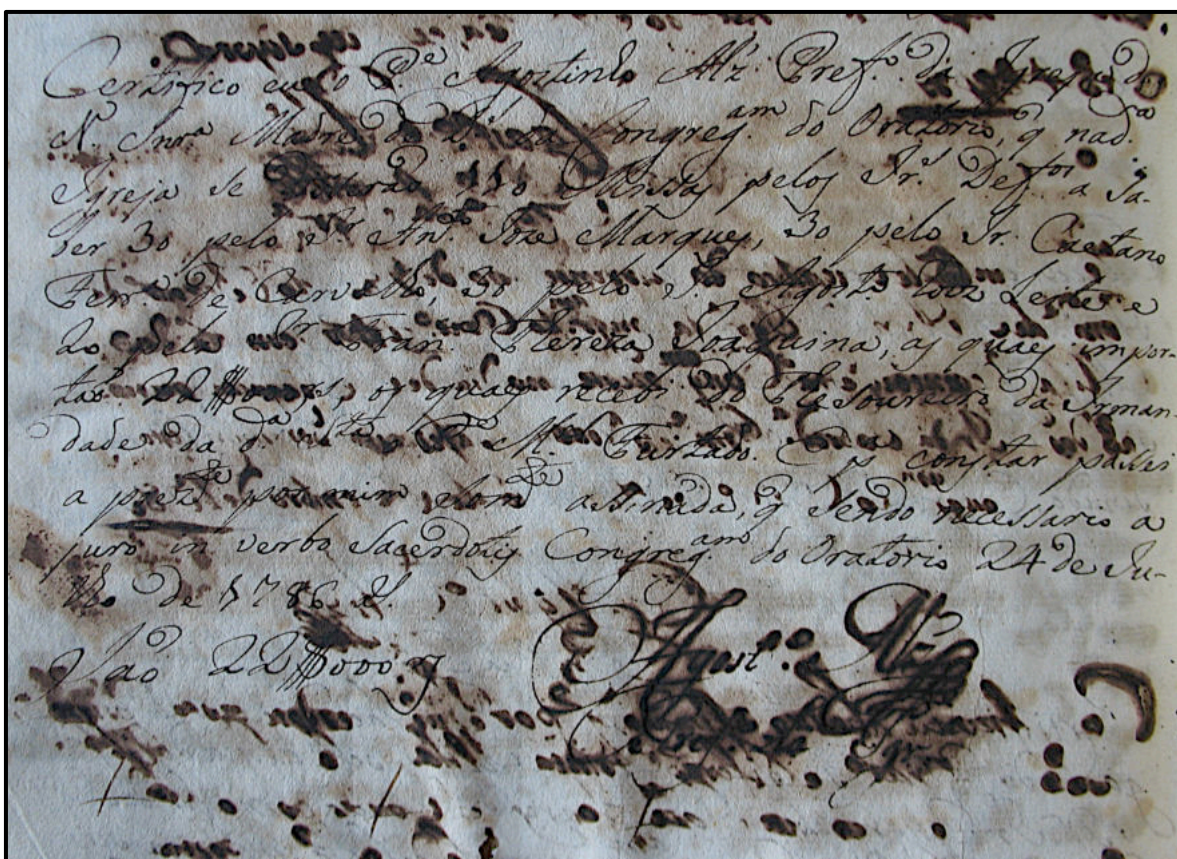 Certifico eu o P.e Agostinho Alz. Pref.o da Igreja de
N. Snr.a Madre de D.s da Congreg.am do Oratorio, q̃ na d.a
Igreja se disserão 110 Missas pelos Ir.s Def.tos a Sa-
ber 30 pelo Ir. Ant.o Joze Marques, 30 pelo Ir. Caetano
Ferr.a de Carvalho, 30 pelo Ir. Agost.o Leite e
20 pela Ir. Fran.ca Thereza Joaquina, as quaes impor-
tão 22$000 rs, os quaes recebi do Thesoureiro da Irman-
dade da d.a M.el Furtado. E p.a constar passei
a prez.te por mim som.te assinada, q̃ sendo necessario a
juro in verbo Sacerdotis Congreg.am do Oratorio 24 de Ju-
lho de 1786
São 22$000 rs
Agost.o Alz.